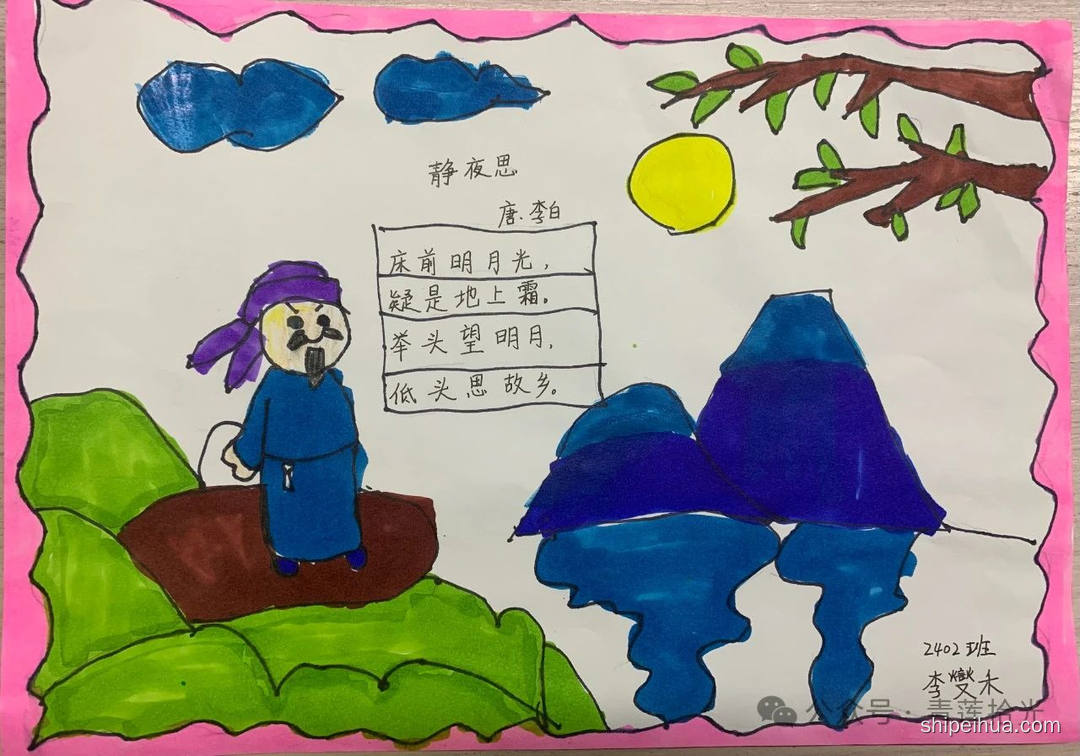 静夜思
唐·李白
床前明月光，
疑是地上霜。
举头望明月，
低头思故乡。
2402班
李燮禾
公众号·青莲拾光
shipeihua.com